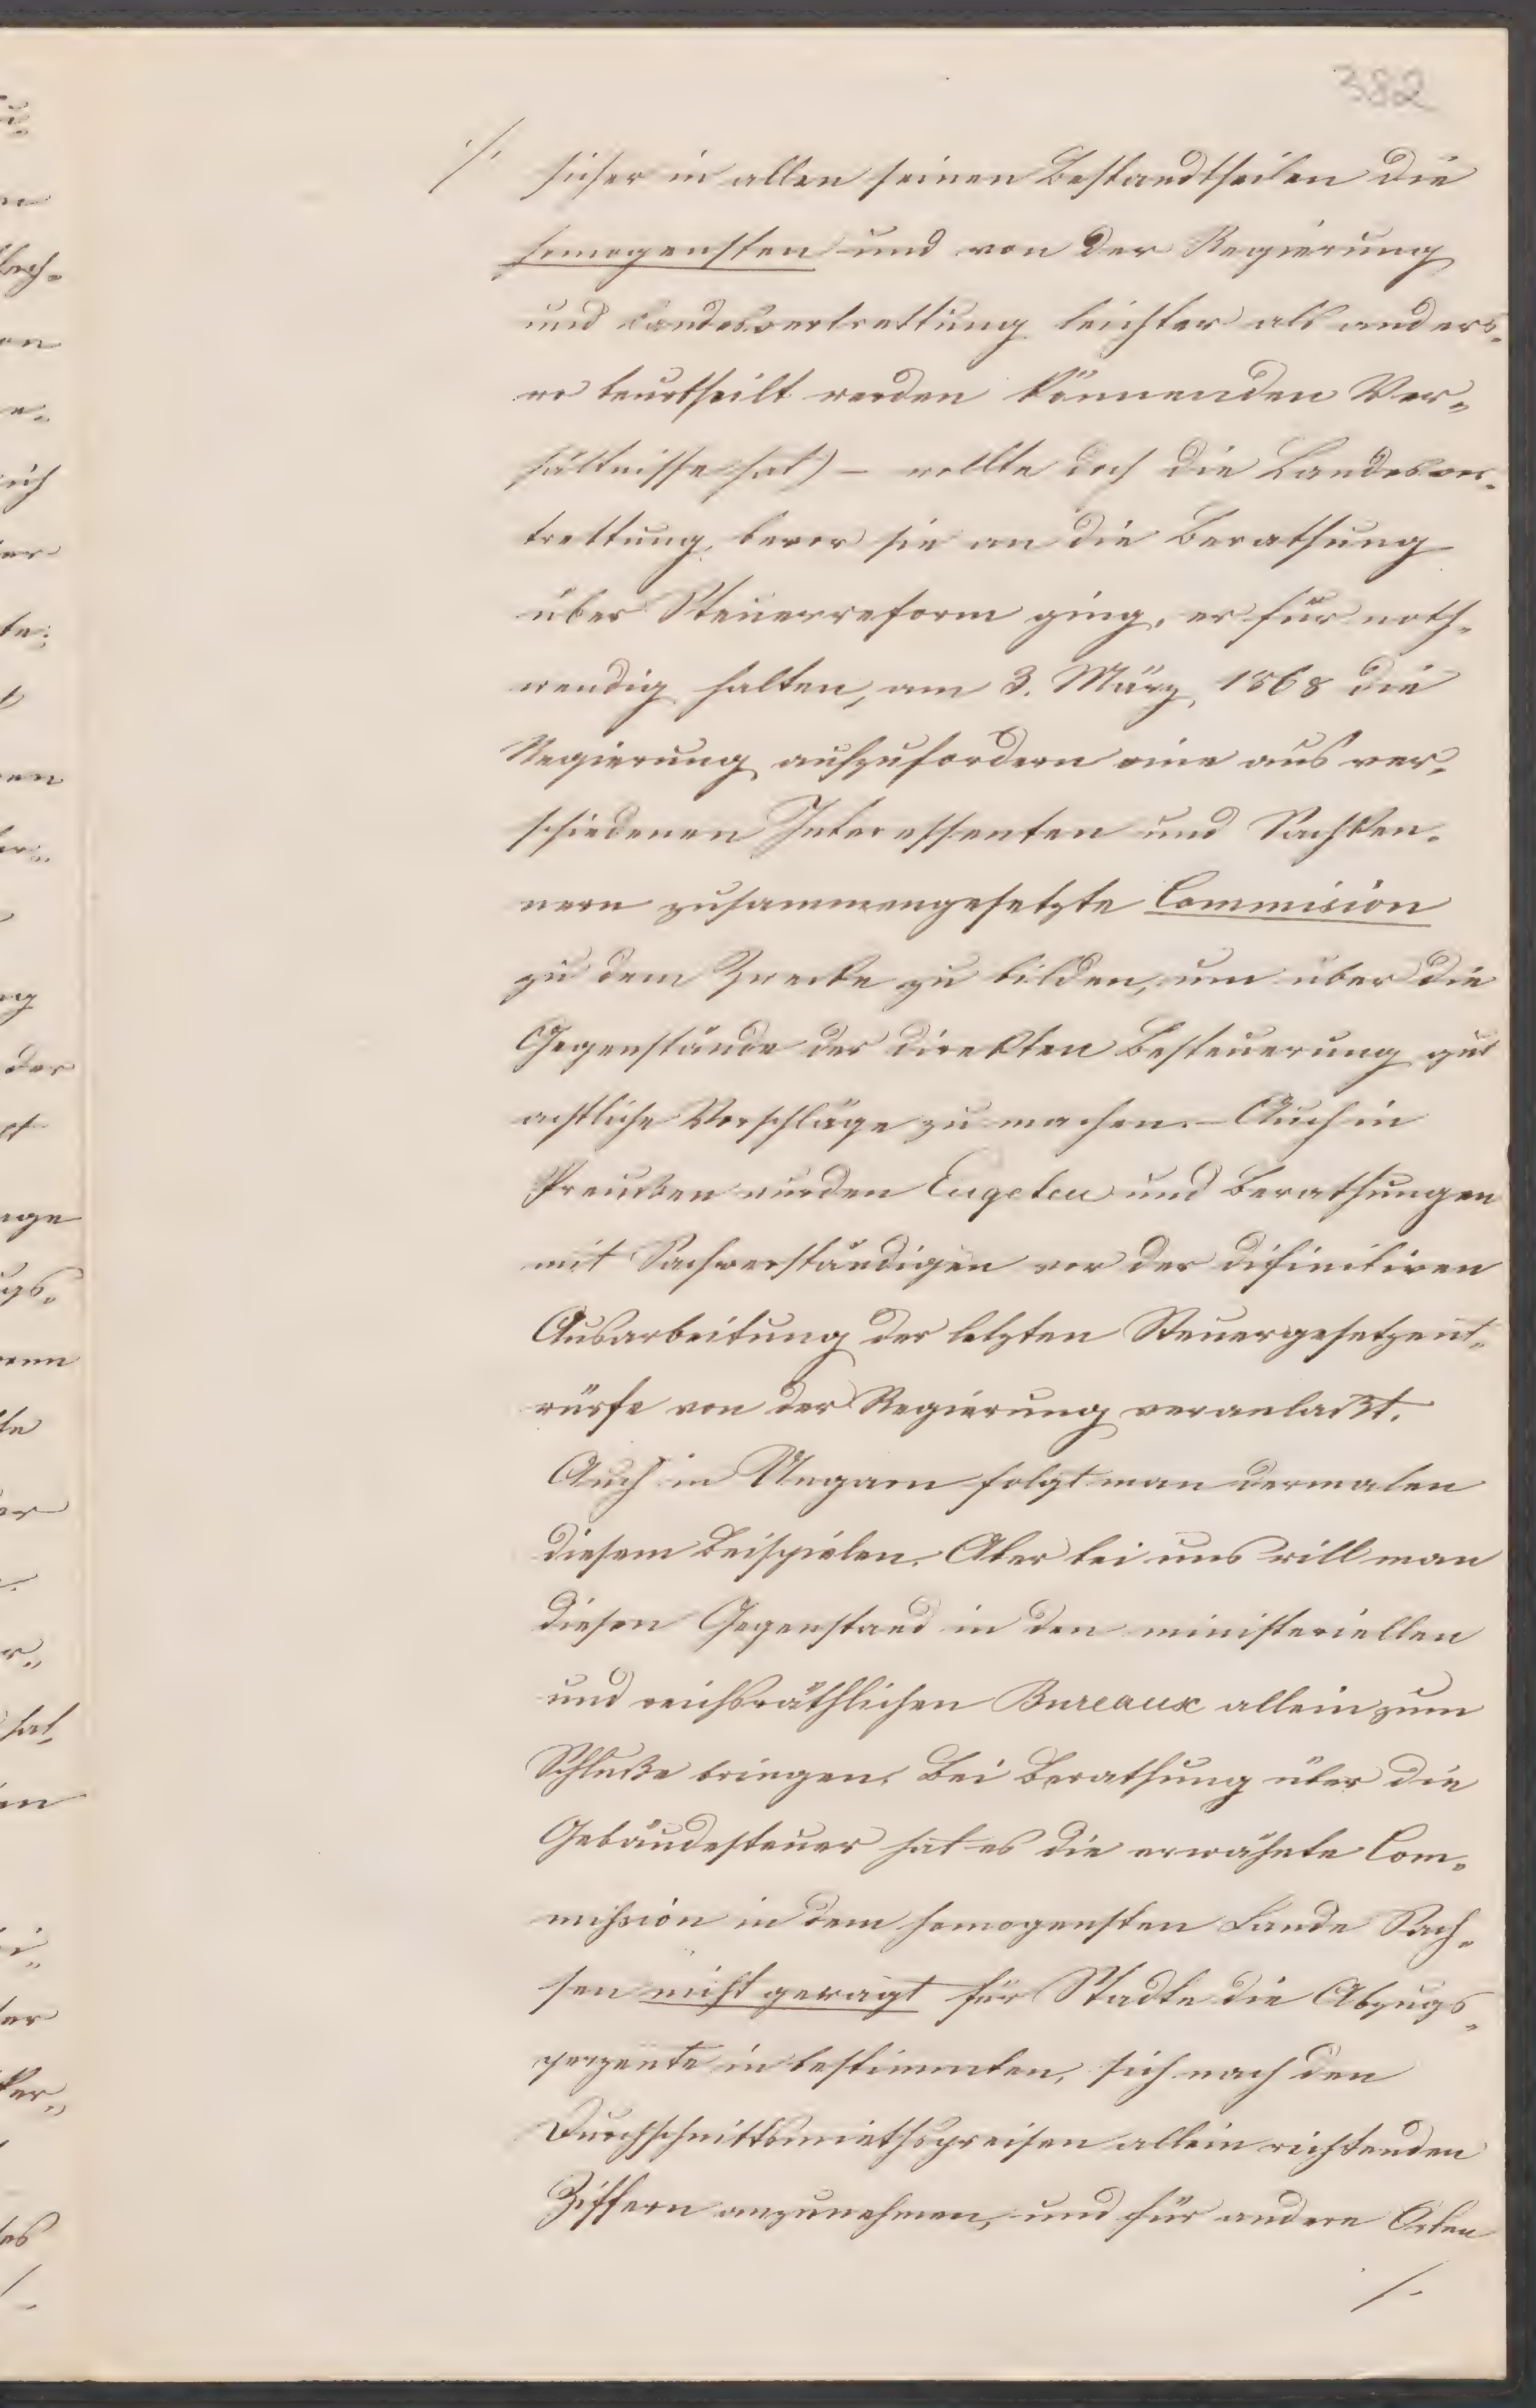 382
./. sicher in allen seinen Bestandtheilen die
homogensten und von der Regierung
und Landesvertrettung leichter als anders-
wo beurtheilt werden könnenden Ver-
hältnisse hat) – wollte doch die Landesver-
trettung, bevor sie an die Berathung
über Steuerreform ging, es für noth-
wendig halten, am 3. März 1868 die
Regierung aufzufordern eine aus ver-
schiedenen Interessenten und Sachken-
nern zusammengesetzte Commision
zu dem Zwecke zu bilden, um über die
Gegenstände der direkten Besteuerung gut
achtliche Vorschläge zu machen. – Auch in
Preußen wurden Enqeten und Berathungen
mit Sachverständigen vor der difinitiven
Ausarbeitung der letzten Steuergesetzent-
würfe von der Regierung veranlaßt.
Auch in Ungarn folgt man dermalen
diesem Beispielen. Aber bei uns will man
diesen Gegenstand in den ministeriellen
und reichsräthlichen Bureaux allein zum
Schluße bringen. Bei Berathung über die
Gebäudesteuer hat es die erwähnte Com-
mission in dem homogensten Lande Sach-
sen nicht gewagt für Städte die Abzugs-
perzente in bestimmten, sich nach den
Durchschnittsmiethspreisen allein richtenden
Ziffern anzunehmen, und für andere Orten
/.